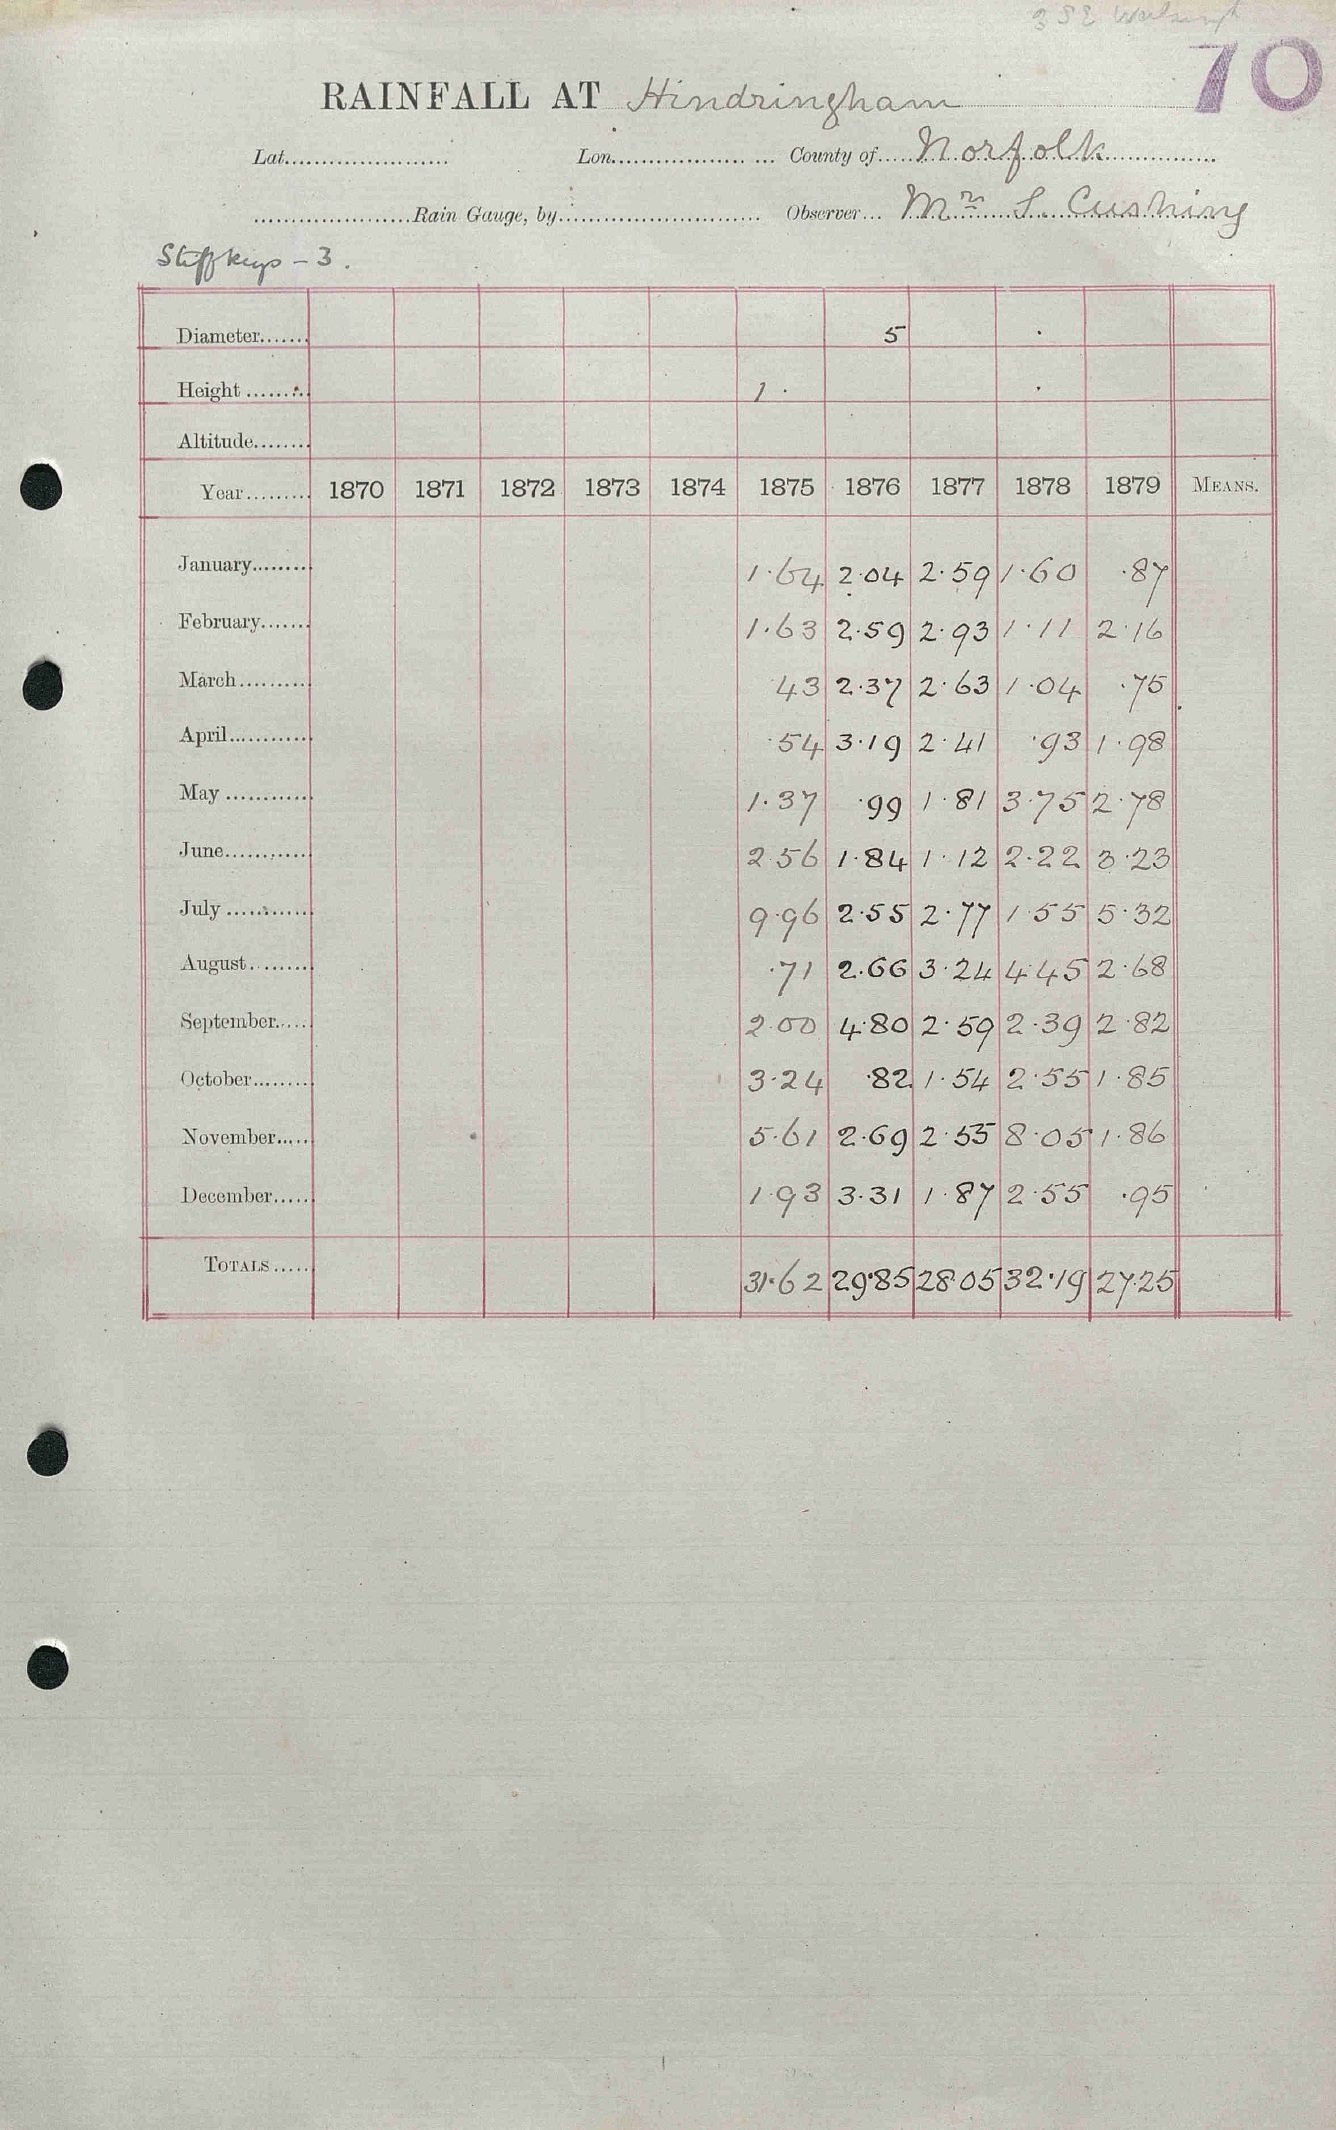 3 S E Walsingh
70
RAINFALL AT Hindringham
Lat...................... Lon.................. ... County of.....Norfolk...............
.....................Rain Gauge, by............................ Observer... Mr S. Cushing
Stiffkeys – 3.
Diameter....... 5
Height ........ 1
Altitude........
Year......... 1870 1871 1872 1873 1874 1875 1876 1877 1878 1879 MEANS.
January........ 1.64 2.04 2.59 1.60 .87
February....... 1.63 2.59 2.93 1.11 2.16
March.......... 43 2.37 2.63 1.04 .75
April........... .54 3.19 2.41 .93 1.98
May ............ 1.37 .99 1.81 3.75 2.78
June............ 2.56 1.84 1.12 2.22 3.23
July ............ 9.96 2.55 2.77 1.55 5.32
August......... .71 2.66 3.24 4.45 2.68
September..... 2.00 4.80 2.59 2.39 2.82
October........ 3.24 .82 1.54 2.55 1.85
November..... 5.61 2.69 2.55 8.05 1.86
December..... 1.93 3.31 1.87 2.55 .95
TOTALS ..... 31.62 29.85 28.05 32.19 27.25